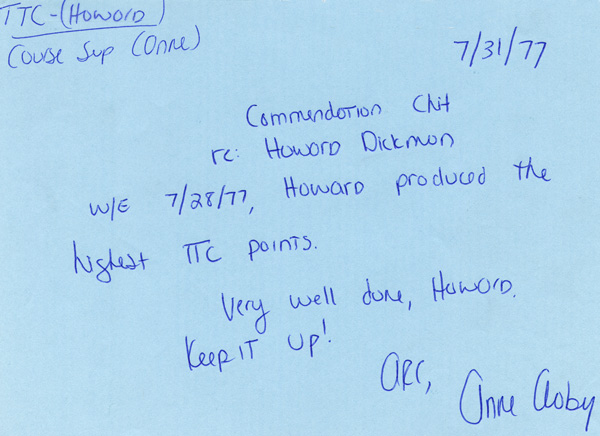 TTC-(Howard)
Course Sup (Anne)
7/31/77
Commendation Chit
re: Howard Dickman
W/E 7/28/77, Howard produced the
highest TTC points.
Very well done, Howard.
Keep IT up!
ARC,
Anne